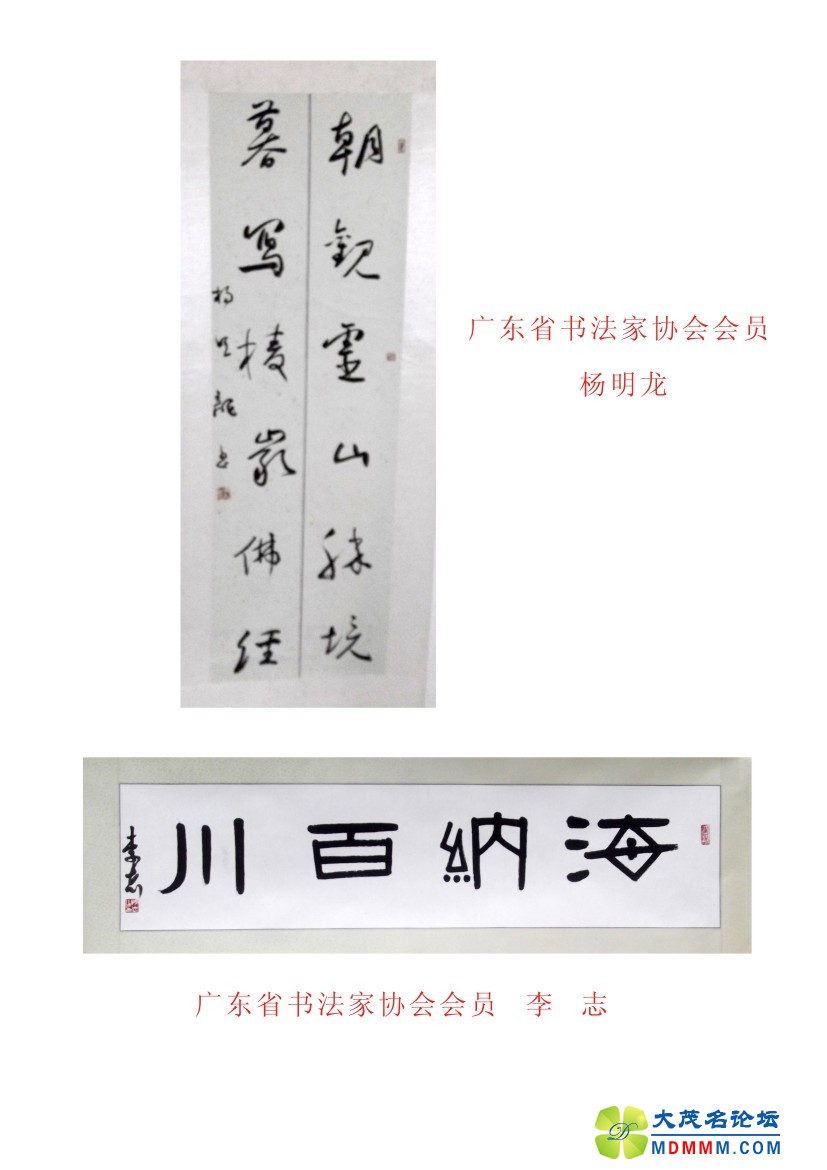 朝觀靈山勝境
暮寫楞嚴佛經
楊明龍書
广东省书法家协会会员
杨明龙
海納百川
李志
广东省书法家协会会员 李 志
大茂名论坛
MDMMM.COM